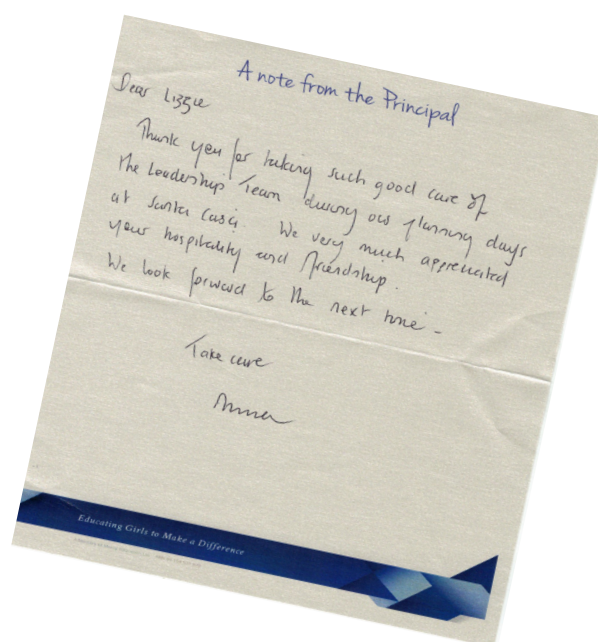 A note from the Principal
Dear Lizzie
Thank you for taking such good care of
the Leadership Team during our planning days
at Santa Casa. We very much appreciated
your hospitality and friendship.
We look forward to the next time -
Take care
Educating Girls to Make a Difference